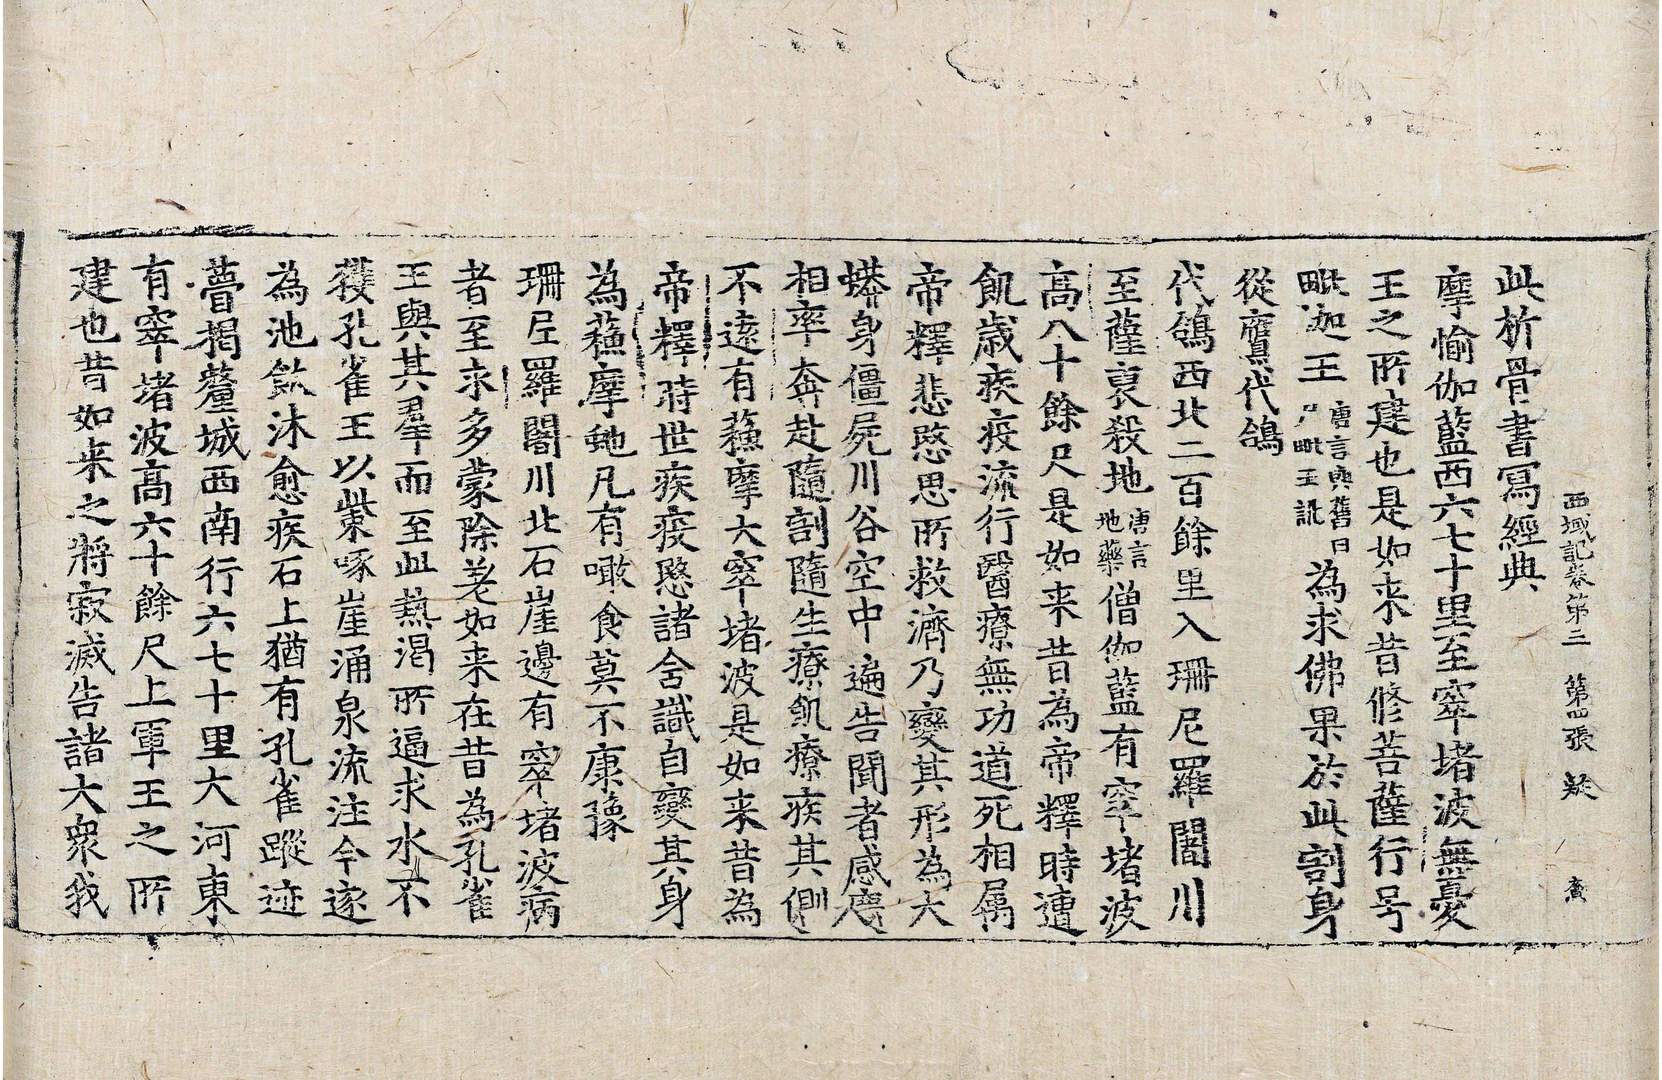 西域記卷第三 第四張 㝹
此析骨書寫經典
摩愉伽藍西六七十里至窣堵波無憂
王之所建也是如来昔修菩薩行号
毗迦王唐言與舊曰尸毗王訛為求佛果於此割身
從鷹代鴿
代鴿西北二百餘里入珊尼羅闍川
至薩裒殺地唐言地藥僧伽藍有窣堵波
高八十餘尺是如来昔為帝釋時遭
飢歳疾疫流行醫療無功道死相属
帝釋悲愍思所救濟乃變其形為大
蟒身僵屍川谷空中遍告聞者感慶
相率奔赴隨割隨生療飢療疾其側
不遠有蘓摩大窣堵波是如来昔為
帝釋時世疾疫愍諸含識自變其身
為蘓摩虵凡有噉食莫不康豫
珊尼羅闍川北石崖邊有窣堵波病
者至求多蒙除差如来在昔為孔雀
王與其羣而至此熱渴所逼求水不
獲孔雀王以㭰啄崖涌泉流注今遂
為池飲沐愈疾石上猶有孔雀蹤迹
瞢揭釐城西南行六七十里大河東
有窣堵波高六十餘尺上軍王之所
建也昔如来之將寂滅告諸大衆我